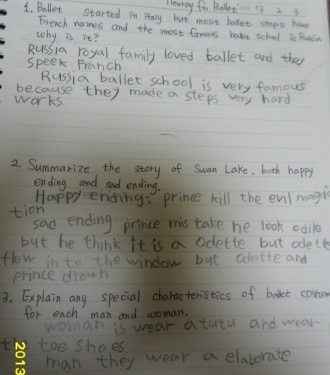 Hooray for Ballet 13 2 3
1. Ballet started in Italy but most ballet steps have
French names and the most famous ballet school is Russia
why is it?
Russia royal family loved ballet and they
speek Franch
Russia ballet school is very famous
because they made a steps very hard
works.
2 Summarize the story of Swan Lake, both happy
ending and sad ending.
Happy ending: prince kill the evil magic
tion
sad ending: prince mis take he look odile
but he think it is a Odette but odette
flew in to the window but odette and
prince drown
3. Explain any special characteristics of ballet costum
for each man and woman.
woman is wear a tutu and wear
toe shoes
man they wear a elaborate
2013